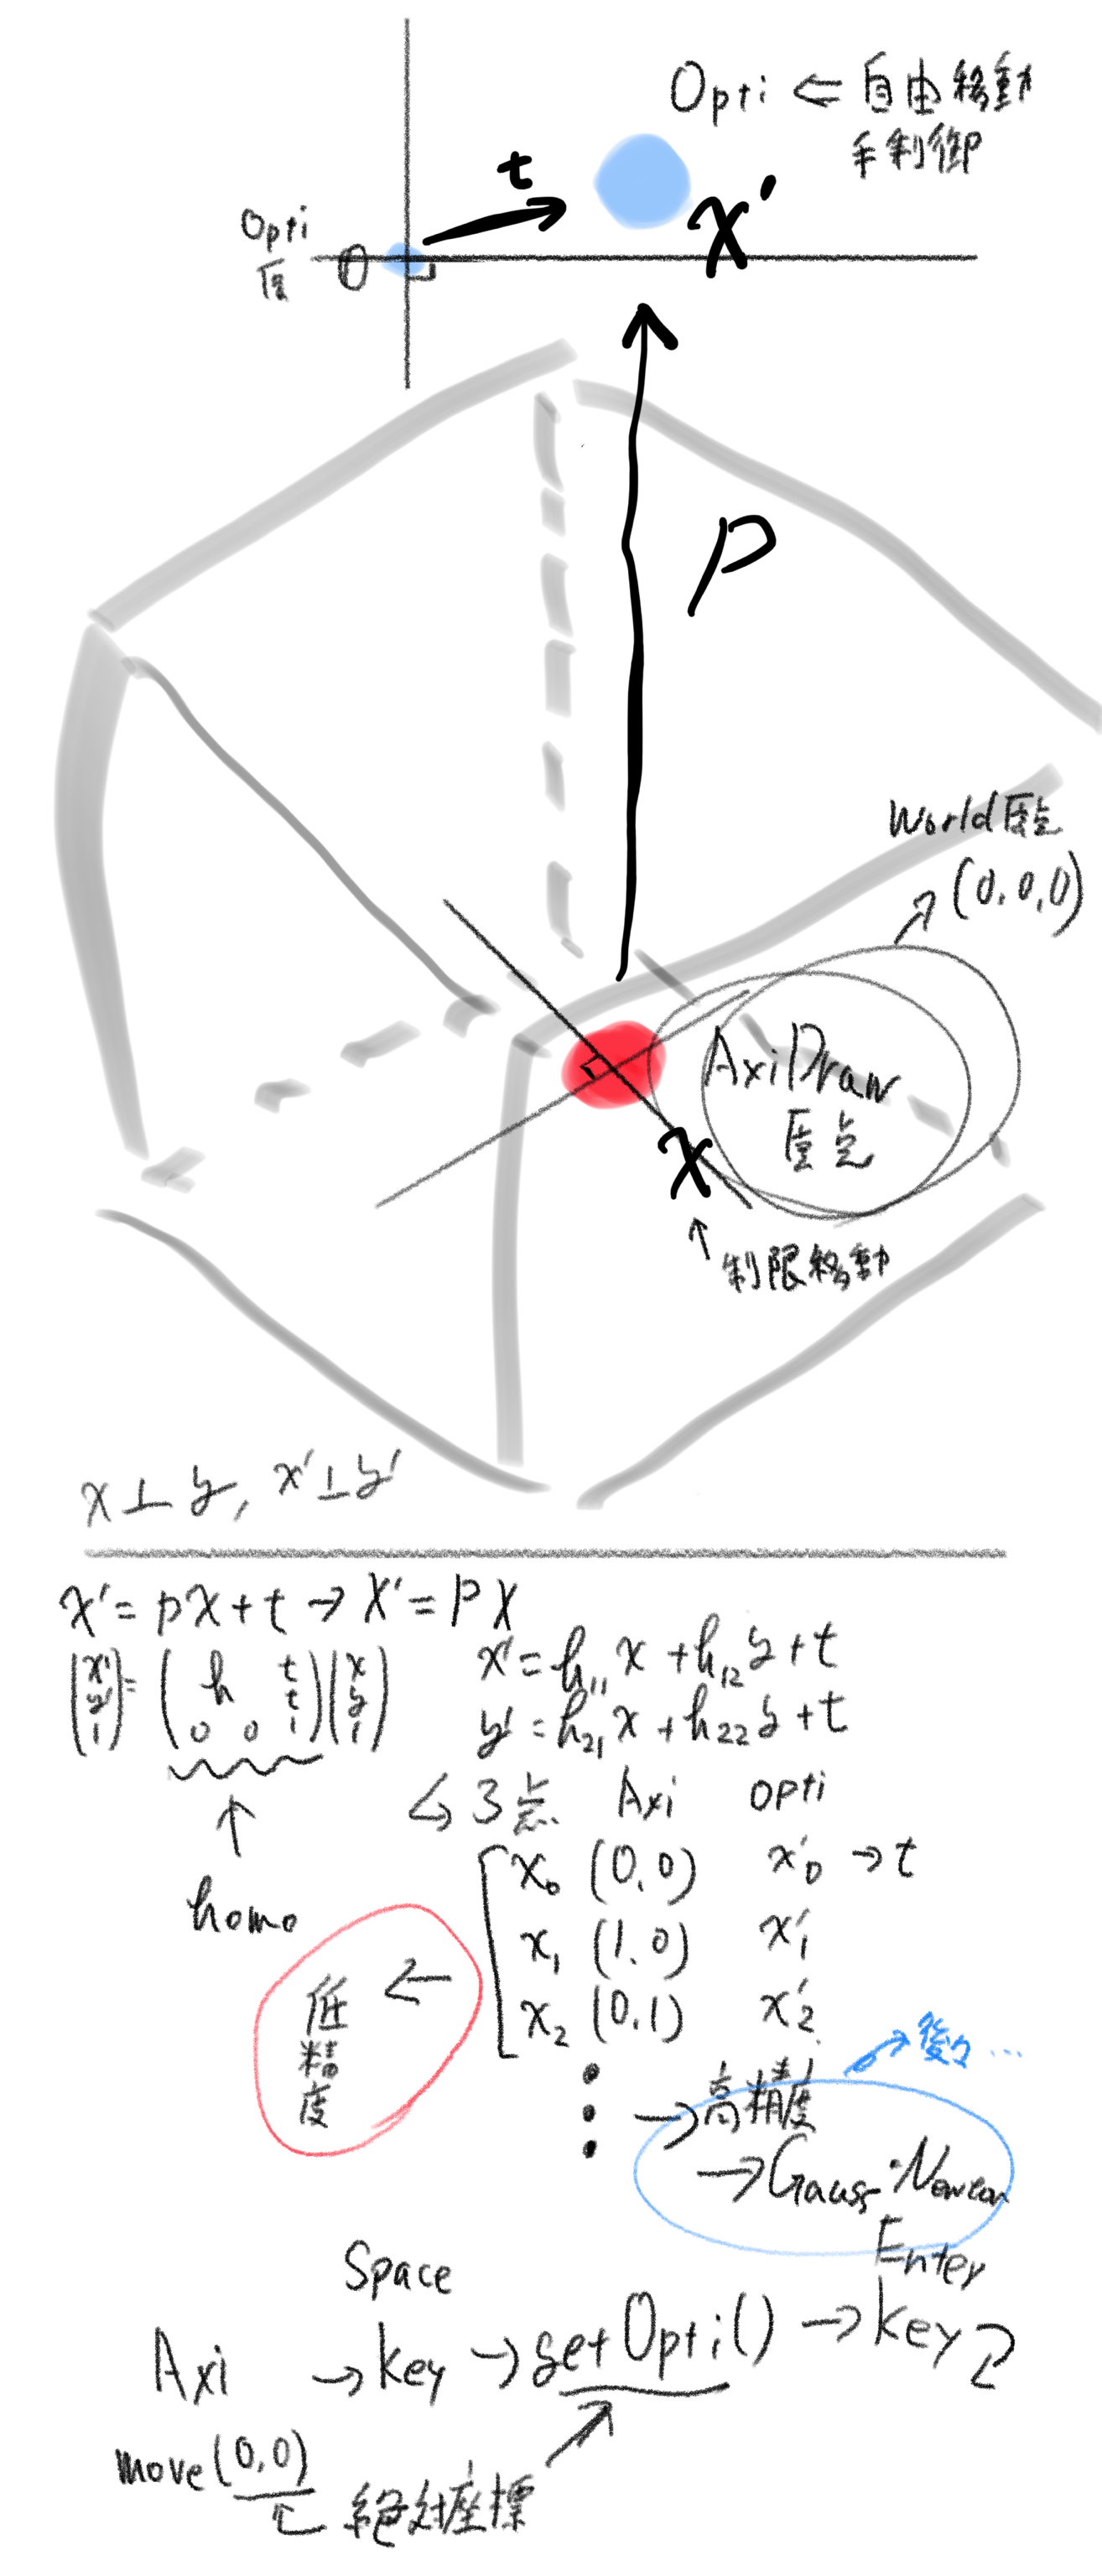 Opti ⇐ 自由移動
手制御
t
x'
Opti
原
O
P
World原点
(0,0,0)
AxiDraw
原点
x
↑
制限移動
x⊥y, x'⊥y'
x' = px + t → X' = PX
(x' y' 1) = (h t t 0 0 1)(x y 1)
x' = h₁₁x + h₁₂y + t
y' = h₂₁x + h₂₂y + t
↑
homo
↳ 3点 Axi opti
x₀ (0,0) x'₀ → t
x₁ (1,0) x'₁
x₂ (0,1) x'₂
← 低精度
⋮ → 高精度
→ Gauss・Newton
Space
Enter
Axi → key → getOpti() → key
move(0,0)
絶対座標